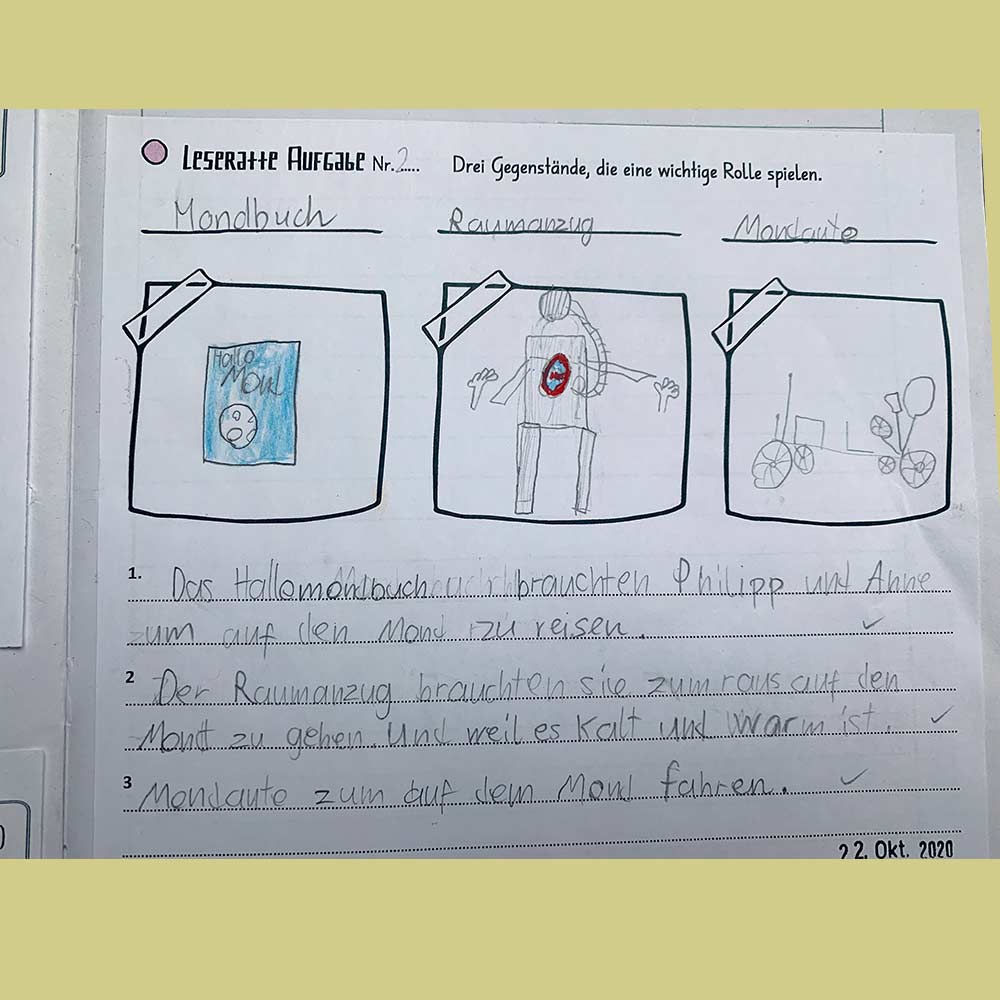 Leseratte Aufgabe Nr. 2..... Drei Gegenstände, die eine wichtige Rolle spielen.
Mondbuch Raumanzug Mondauto
Hallo
Mond
1. Das Hallomondbuch brauchten Philipp und Anne
zum auf den Mond zu reisen.
2 Der Raumanzug brauchten sie zum raus auf den
Mont zu gehen. Und weil es kalt und warm ist.
3 Mondauto zum auf dem Mond fahren.
22. Okt. 2020